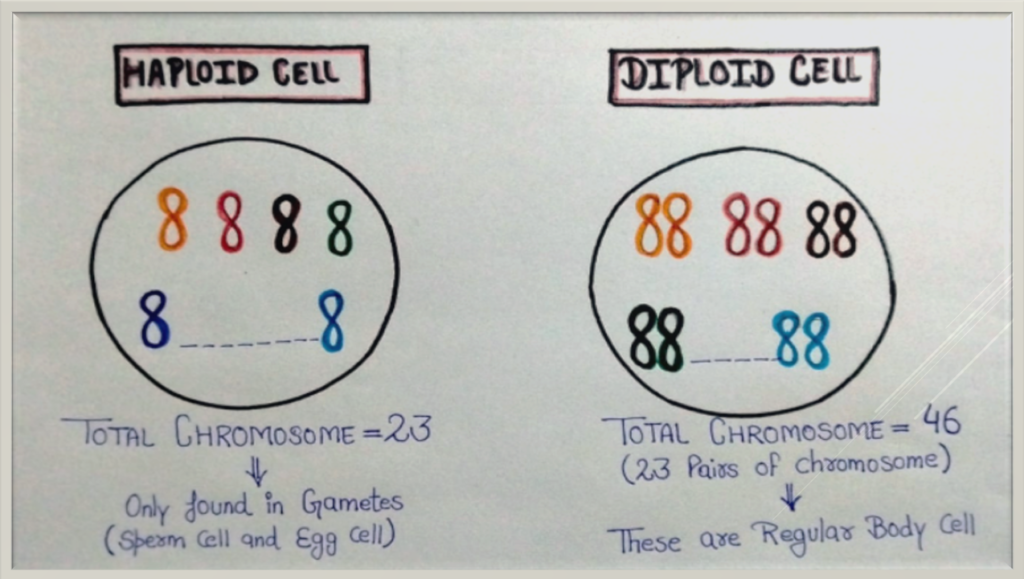 HAPLOID CELL
8 8 8 8
8 8
TOTAL CHROMOSOME = 23
Only found in Gametes
(Sperm Cell and Egg Cell)
DIPLOID CELL
88 88 88
88 88
TOTAL CHROMOSOME = 46
(23 Pairs of chromosome)
These are Regular Body Cell